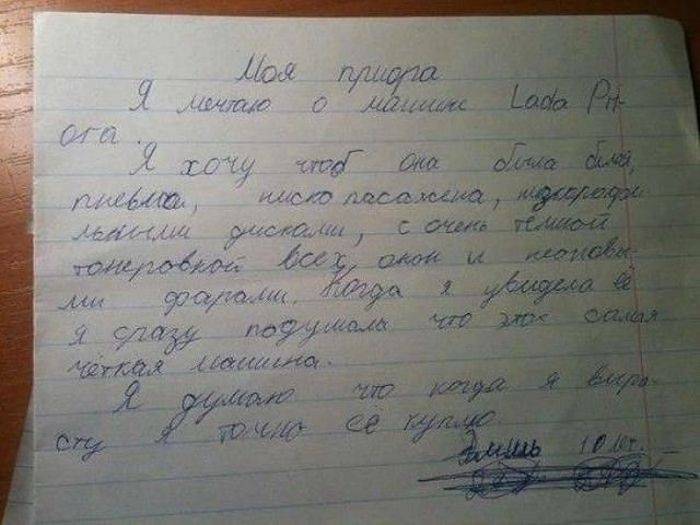 Моя приора
Я мечтаю о машине Lada Pri-
ora.
Я хочу чтоб она была белой,
пневмо, ниско пасажена,
льными дисками, с очень тёмной
тонеровкой всех окон и неоновы-
ми фарами. Когда я увидела её
я сразу подумала что это самая
чёткая машина.
Я думаю что когда я выра-
сту я точно её куплю.
Эмиль 10 лет.